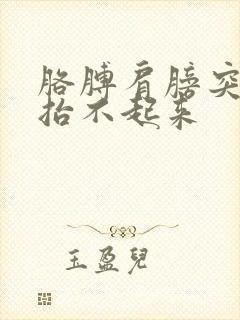 胳膊肩膀突
抬不起来
玉盈兒